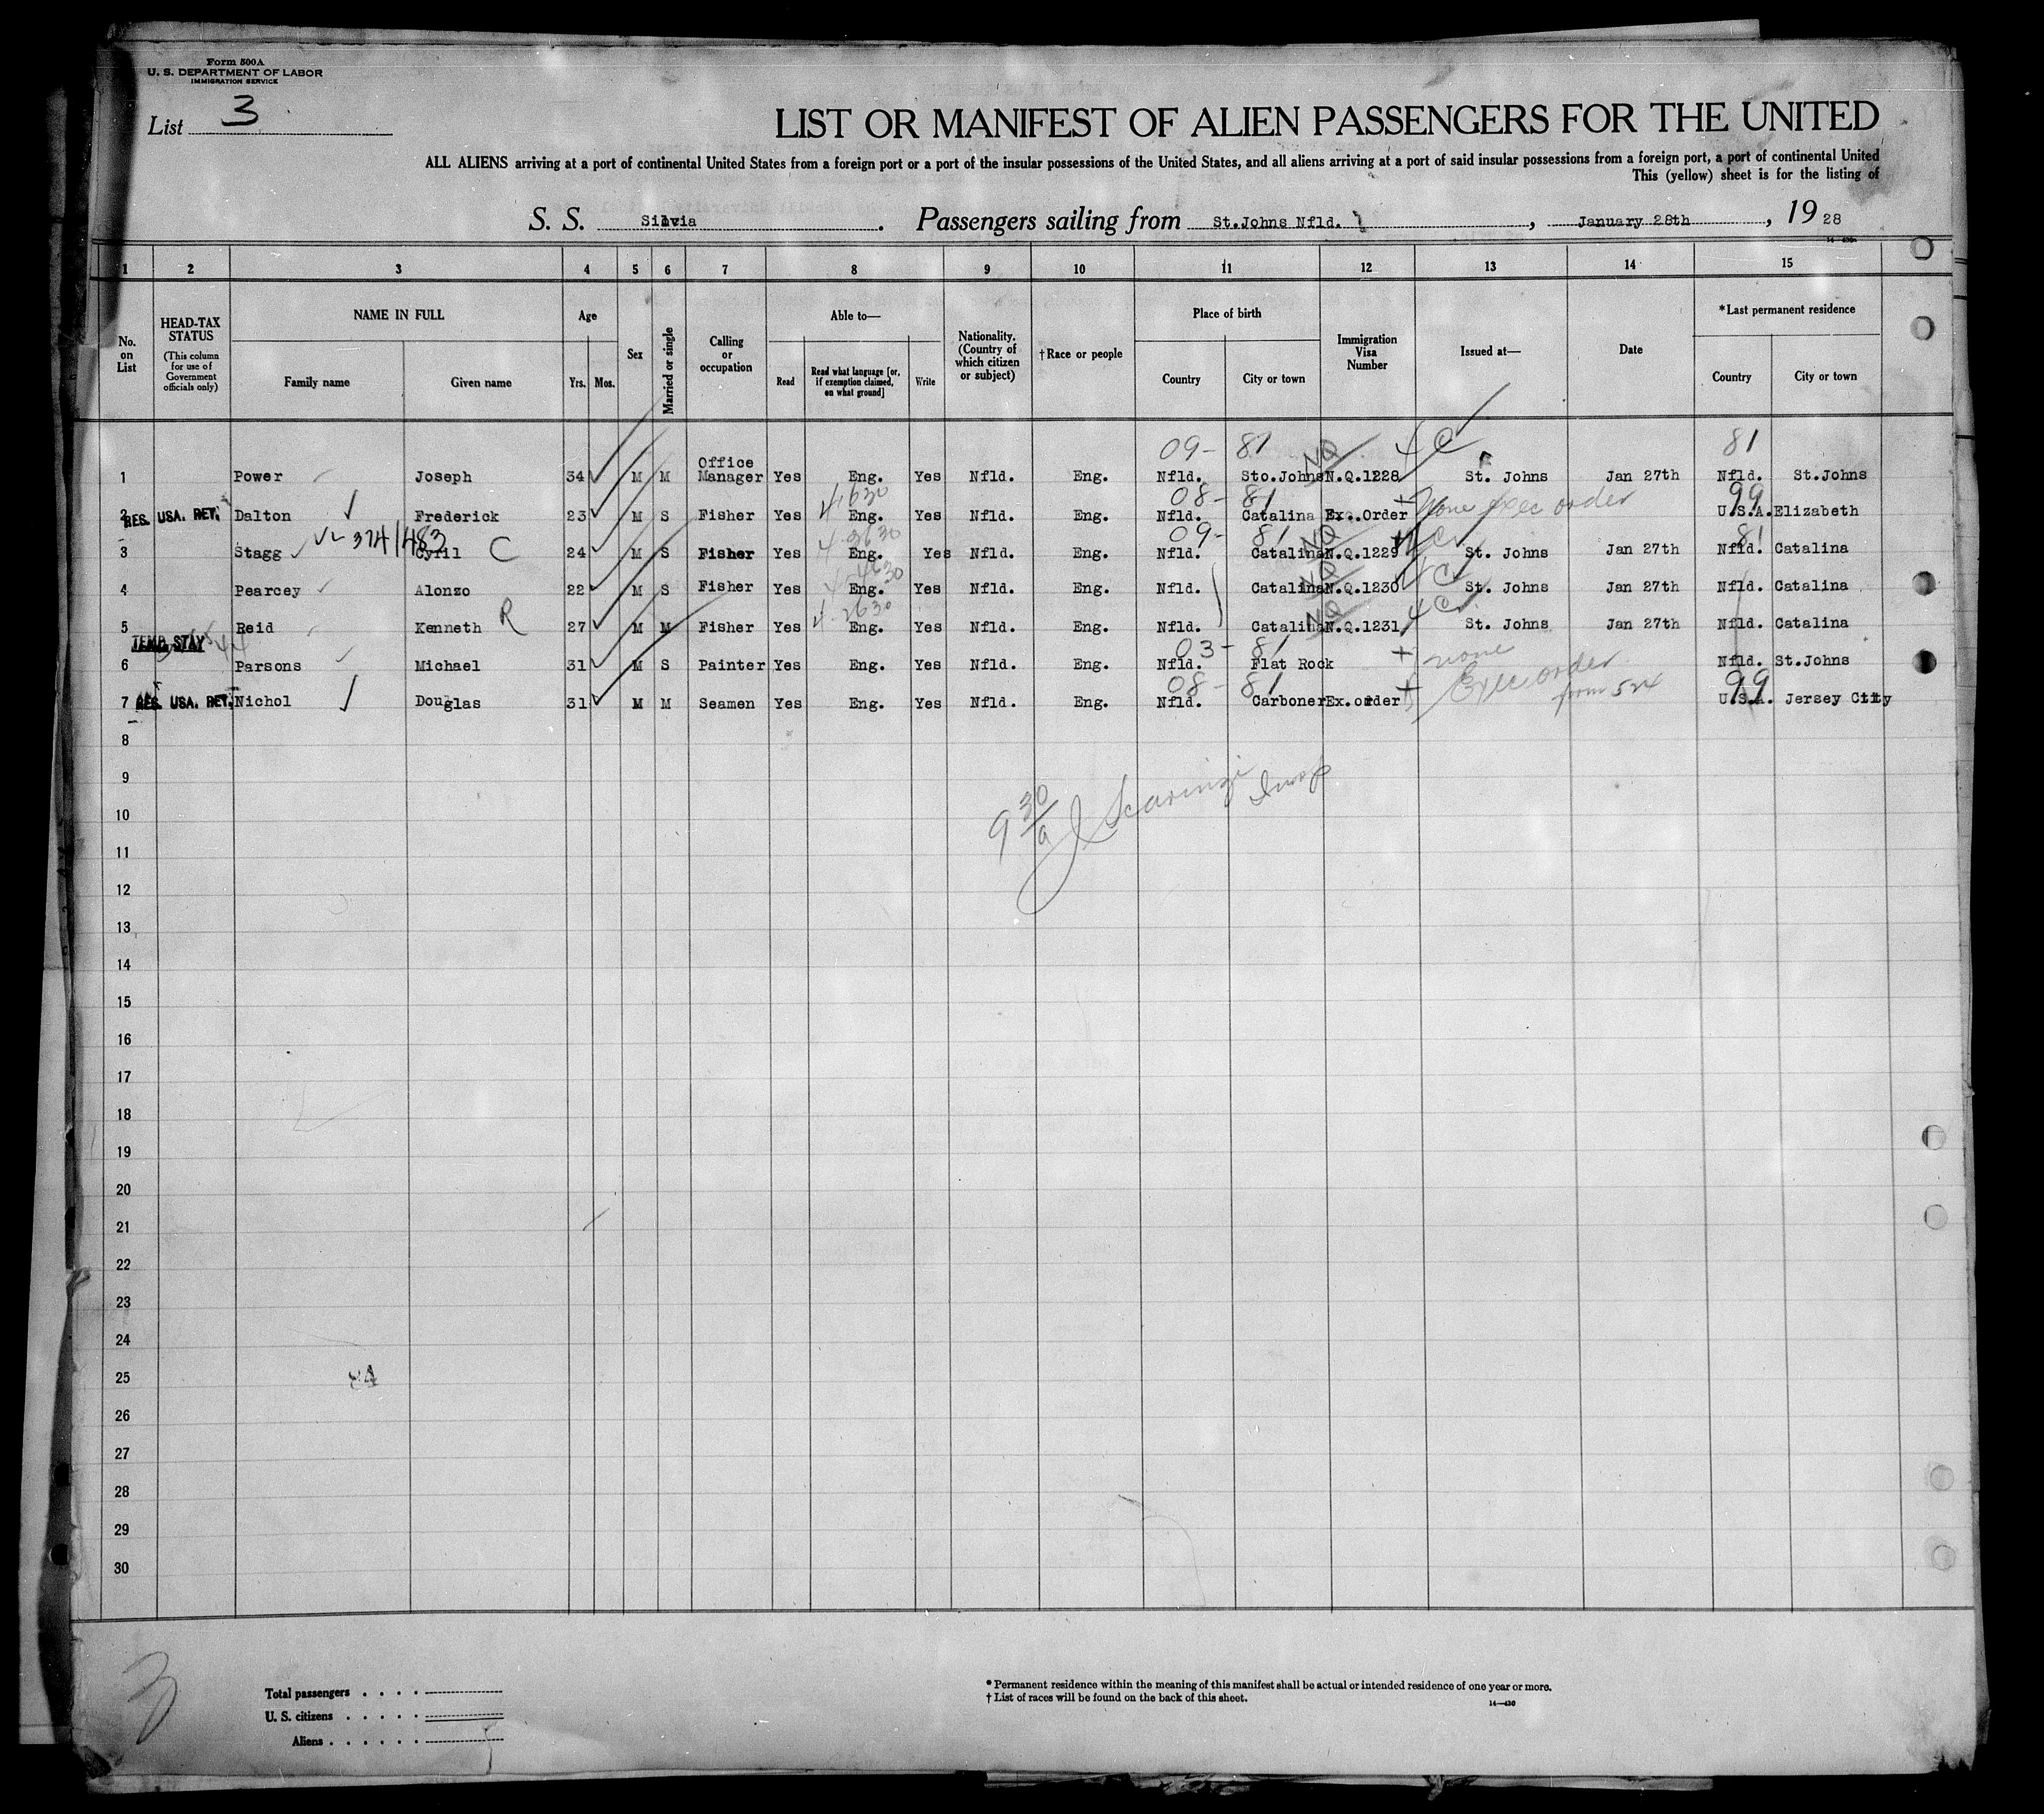 Form 500A
U. S. DEPARTMENT OF LABOR
IMMIGRATION SERVICE
List 3
LIST OR MANIFEST OF ALIEN PASSENGERS FOR THE UNITED
ALL ALIENS arriving at a port of continental United States from a foreign port or a port of the insular possessions of the United States, and all aliens arriving at a port of said insular possessions from a foreign port, a port of continental United
This (yellow) sheet is for the listing of
S. S. Silvia. Passengers sailing from St.Johns Nfld., January 28th, 19 28
1 2 3 4 5 6 7 8 9 10 11 12 13 14 15
No. on List
HEAD-TAX STATUS
(This column for use of Government officials only)
NAME IN FULL
Family name Given name
Age
Yrs. Mos.
Sex
Married or single
Calling or occupation
Able to—
Read
Read what language [or, if exemption claimed, on what ground]
Write
Nationality. (Country of which citizen or subject)
†Race or people
Place of birth
Country City or town
Immigration Visa Number
Issued at—
Date
*Last permanent residence
Country City or town
09- 81 NQ 4C 81
1 Power Joseph 34 M M Office Manager Yes Eng. Yes Nfld. Eng. Nfld. Sto.Johns N.Q.1228 St. Johns Jan 27th Nfld. St.Johns
4.1630 08- 81 None exec order 99
2 RES. USA. RET. Dalton Frederick 23 M S Fisher Eng. Yes Nfld. Eng. Nfld. Catalina Ex..Order U.S.A. Elizabeth
374/483 4-3630 09- 81 NQ 81
3 Stagg Cyril C 24 M S Fisher Yes Eng. Yes Nfld. Eng. Nfld. Catalina N.Q.1229 St. Johns Jan 27th Nfld. Catalina
4-4630 NQ 4C
4 Pearcey Alonzo 22 M S Fisher Yes Eng. Yes Nfld. Eng. Nfld. Catalina N.Q.1230 St. Johns Jan 27th Nfld. Catalina
4-2630 NQ 4C
5 Reid Kenneth R 27 M M Fisher Yes Eng. Yes Nfld. Eng. Nfld. Catalina N.Q.1231 St. Johns Jan 27th Nfld. Catalina
TEMP. STAY 03- 81 none
6 Parsons Michael 31 M S Painter Yes Eng. Yes Nfld. Eng. Nfld. Flat Rock Nfld. St.Johns
08- 81 Exec order from 524 99
7 RES. USA. RET. Nichol Douglas 31 M M Seamen Yes Eng. Yes Nfld. Eng. Nfld. Carboner Ex.order U.S.A. Jersey City
8
9
9 30/a J Scaringi Insp
10
11
12
13
14
15
16
17
18
19
20
21
22
23
24
25
26
27
28
29
30
3
Total passengers
U. S. citizens
Aliens
* Permanent residence within the meaning of this manifest shall be actual or intended residence of one year or more.
† List of races will be found on the back of this sheet.
14—430